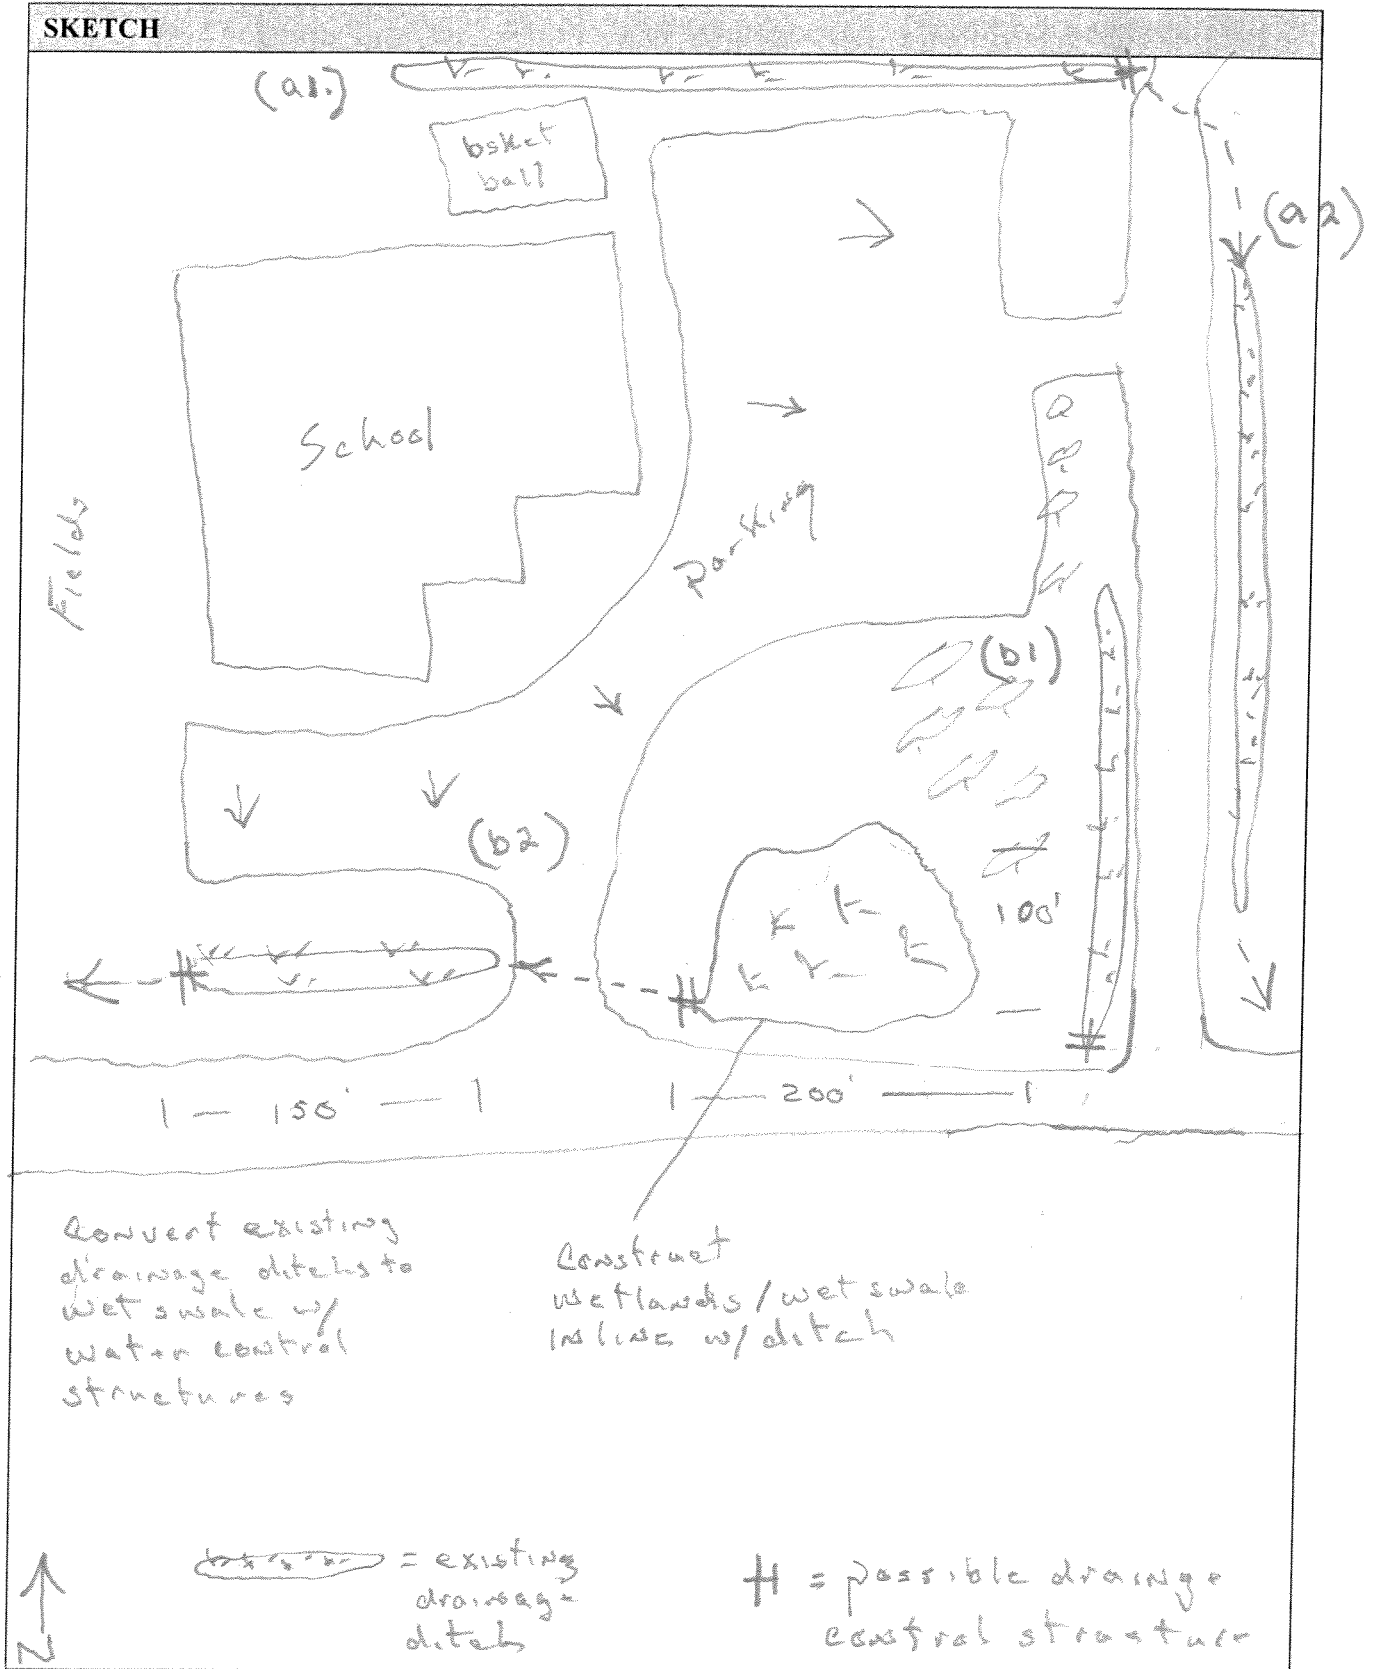 SKETCH
(a1.)
bsket
ball
(a2)
School
Fields
parking
(b1)
(b2)
100'
150'
200'
Convert existing
drainage ditches to
wet swale w/
water control
structures
Construct
wetlands/wet swale
inline w/ ditch
= existing
drainage
ditch
= possible drainage
control structure
N